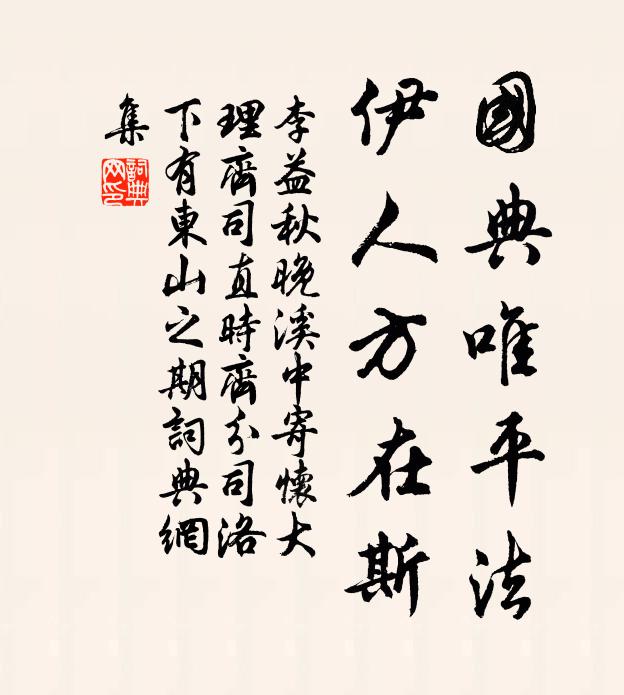 國典唯平法
伊人方在斯
李益秋晚溪中寄懷大
理齊司直時齊分司洛
下有東山之期詞典網
集
詞典網印